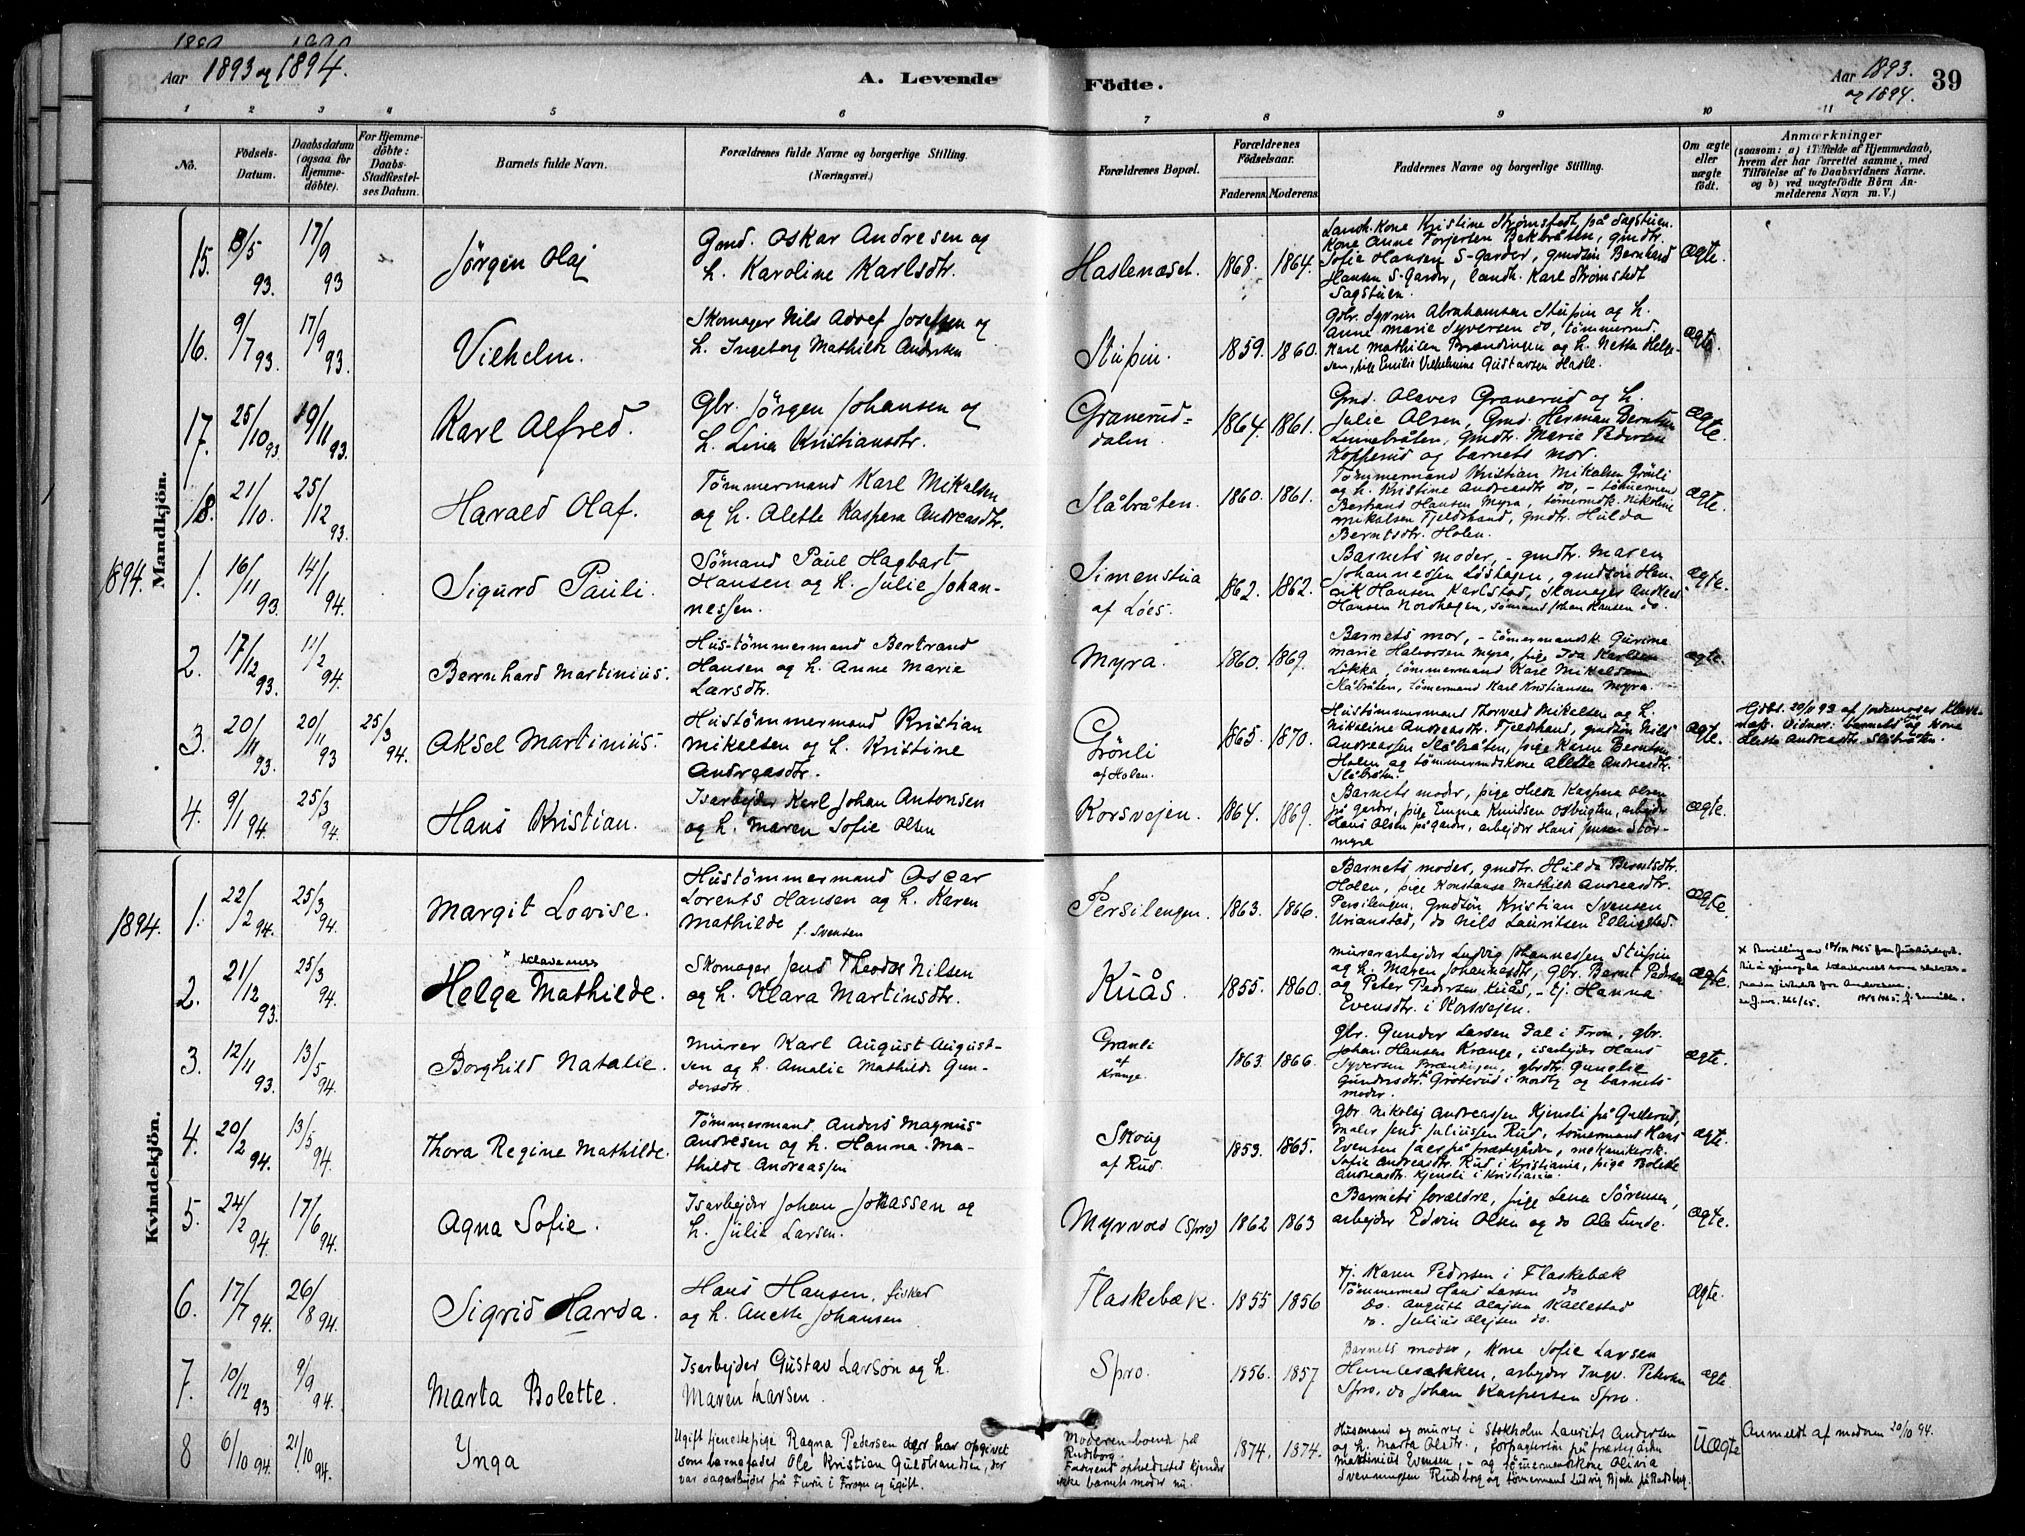 Aar 1893 og 1894.
A. Levende Födte.
Aar 1893. og 1894.
39
1 2 3 4 5 6 7 8 9 10 11
No.
Födsels-Datum.
Daabsdatum (ogsaa for Hjemmedöbte).
For Hjemmedöbte: Daabs-Stadfæstelses Datum.
Barnets fulde Navn.
Forældrenes fulde Navne og borgerlige Stilling. (Næringsvei.)
Forældrenes Bopæl.
Forældrenes Födselsaar.
Faderens. Moderens.
Faddernes Navne og borgerlige Stilling.
Om ægte eller uægte födt.
Anmærkninger
(saasom: a) i Tilfælde af Hjemmedaab, hvem der har forrettet samme, med Tilföielse af to Daabsvidners Navne. og b) ved uægtefödte Börn Anmelderens Navn m. V.)
Mandkjön.
15. 8/5 93. 17/9 93 Jörgen Olaf
Gmd. Oskar Andresen og
h. Karoline Karlsdtr.
Haslenæset. 1868. 1864.
Landh. kone Kristine Strømstedt, på Sagstuen.
Sofie Hansen S-Garder, gmdsön Bernhard
Hansen S-Garder, landh. Karl Strømstedt
Sagstuen.
ægte.
16. 9/7 93. 17/9 93. Vilhelm.
Skomager Nils Adolf Josefsen og
h. Ingeborg Mathilde Andersen
1859. 1860.
Anne Marie Syversen do, tömmermd.
sen, pige Emilie Vilhelmine Gustavsen Hasle.
ægte.
17. 25/10 93. 19/11 93. Karl Alfred.
Gbr. Jörgen Johansen og
h. Lina Kristiansdtr.
Granerud-
dalen. 1864. 1861.
Gmd. Olaves Granerud og h.
Julie Olsen, Gmd. Herman Berntsen
Linnebråten, gmdtr. Marie Pedersen
Kopperud og barnets mor.
ægte.
18. 21/10. 25/12 93. Harald Olaf.
Tömmermand Karl Mikalsen
og h. Alette Kaspera Andreasdtr.
Slåbråten. 1860. 1861.
Tömmermand Kristian Mikalsen Grönli
og h. Kristine Andreasdtr do, - tömmermand
Bertrand Hansen Myra, tömermdk. Nikoline
Mikalsen Fjeldstrand, gmdtr. Hulda
Berntsdtr. Holen.
ægte.
1894.
1. 16/11 93. 14/1 94. Sigurd Pauli.
Sömand Paul Hagbart
Hansen og h. Julie Johan-
nessen.
Simenstua
af Löes. 1862. 1862.
Barnets moder, - gmdtr. Maren
Johannessen Löshagen, gmdsön Hen-
rik Hansen Karlstad, Skomager Andreas
Hansen Nordhagen, sömand Johan Hansen do.
ægte.
2. 17/12 93. 11/2 94. Bernhard Martinius.
Hus-tömmermand Bertrand
Hansen og h. Anne Marie
Larsdtr.
Myra. 1860. 1869.
Barnets mor, - tömermandsk. Gurine
Marie Halvorsen Myra, pige Ida Karlsen
Lökka, tömmermand Karl Mikalsen
Slåbråten, tömermand Karl Kristiansen Myra.
ægte.
3. 20/11 93. 20/11 93 25/3 94. Aksel Martinius.
Hustömmermand Kristian
Mikalsen og h. Kristine
Andreasdtr.
Grönli
af Holen. 1865. 1870.
Hustömmermand Thorvald Mikalsen og h.
Nikoline Andreasdtr. Fjeldstrand, gmdsön Nils
Andreassen Slåbråten, pige Karen Berntsen
Holen og tömmermandskone Alette Andreasdtr.
Slåbråten.
ægte.
Hjdbt. 20/11 93 af jordemoder Klave-
næss. Vidner: barnets far og kone
Alette Andreasdtr. Slåbråten.
4. 9/1 94. 25/3 94. Hans Kristian.
Isarbejder Karl Johan Antonsen
og h. Maren Sofie Olsen
Korsvejen. 1864. 1869.
Barnets moder, pige Hilda Kaspera Olsen
på Garder, pige Emma Knudsen Osbugten, arbejder
Hans Olsen på Garder, arbejder Hans Jensen Stor-
myra
ægte.
Kvindekjön.
1894.
1. 22/2 94. 25/3 94. Margit Lovise.
Hustömmermand Oscar
Lorents Hansen og h. Karen
Mathilde f. Svensen
Persilengen. 1863. 1866.
Barnets moder, gmdtr. Hulda Berntsdtr.
Holen, pige Konstanse Mathilde Andreasdtr.
Persilengen, Gmdsön Kristian Svensen
Urianstad, do Nils Lauritsen Ellingstad.
ægte.
2. 21/12 93. 25/3 94. Helga Mathilde.
x Klaveness
Skomager Jens Theodor Nilsen
og h. Klara Martinsdtr.
Knås. 1855. 1860.
Murerarbejder Ludvig Johannessen
og h. Maren Johannesdtr, Gbr. Bernt Pedersen
og Peter Pedersen Knås, - tj. Hanna
Evensdtr. i Korsvejen.
ægte.
3. 12/11 93. 13/5 94. Borghild Natalie.
Murer Karl August August-
sen og h. Amalie Mathilde Gun-
dersdtr.
Granli
af
Krange. 1863. 1866.
gbr. Gunder Larsen Dal i Fron, gbr.
Johan Hansen Krange, isarbejder Hans
Gundersdtr. Gröterud i Nordby og barnets
moder.
ægte.
4. 20/2 94. 13/5 94. Thora Regine Mathilde.
Tömmermand Anders Magnus
Andresen og h. Hanna Ma-
thilde Andreassen
Skoug
af Rud. 1853. 1865.
gbr. Nikolaj Andreassen Kjensli på Gulerud,
Maler Jens Juliussen Rud, tömermand Hans
Evensen Jaer på præstegården, mekanikersk.
Sofie Andreasdtr. Rud i Kristiania, pige Bolette
Andreasdtr Kjensli i Kristiania.
ægte.
5. 24/2 94. 17/6 94. Agna Sofie.
Isarbejder Johan Johassen og
h. Julie Larsen.
Myrvold (Spro) 1862 1863
Barnets forældre, pige Lena Sörensen,
arbejder Edvin Olsen og do Ole Lunde.
ægte.
6. 17/7 94. 26/8 94. Sigrid Harda.
Hans Hansen, fisker
og h. Anette Johansen
Flaskebæk. 1855 1856
tj. Karen Pedersen i Flaskebæk
Tömmermand Hans Larsen do
do. August Olajsen Kallestad
do. Julius Olajsen do.
ægte.
7. 10/12 93 9/9 94. Marta Bolette.
Isarbejder Gustav Larson og h.
Maren Larsen.
Spro. 1856. 1857
Barnets moder, Kone Sofie Larsen
Humlesækken, arbejder Ingv. Petersen
Spro, do Johan Kaspersen Spro.
ægte.
8 6/10 94. 21/10 94. Ynga
Ugift tjenestepige Ragna Pedersen der har opgivet
som barnefader Ole Kristian Guldbrandsen, der
var dagarbejder på Furu i Frogn og ugift.
Moderen boende på
Rudsborg.
Faderens opholdssted kjender
ikke barnets moder nu. 1874. 1874.
Husmand og murer i Stokholm Laurits Andersen
og h. Marta Olsdtr., forpagtersön på præstegården
Martinius Evensen, - og tömermandskone Olivia
Svenningsen Rudsborg og tömermand Ludvig Bjerke på Rudsborg.
Uægte
Anmeldt af modren 20/10 94.